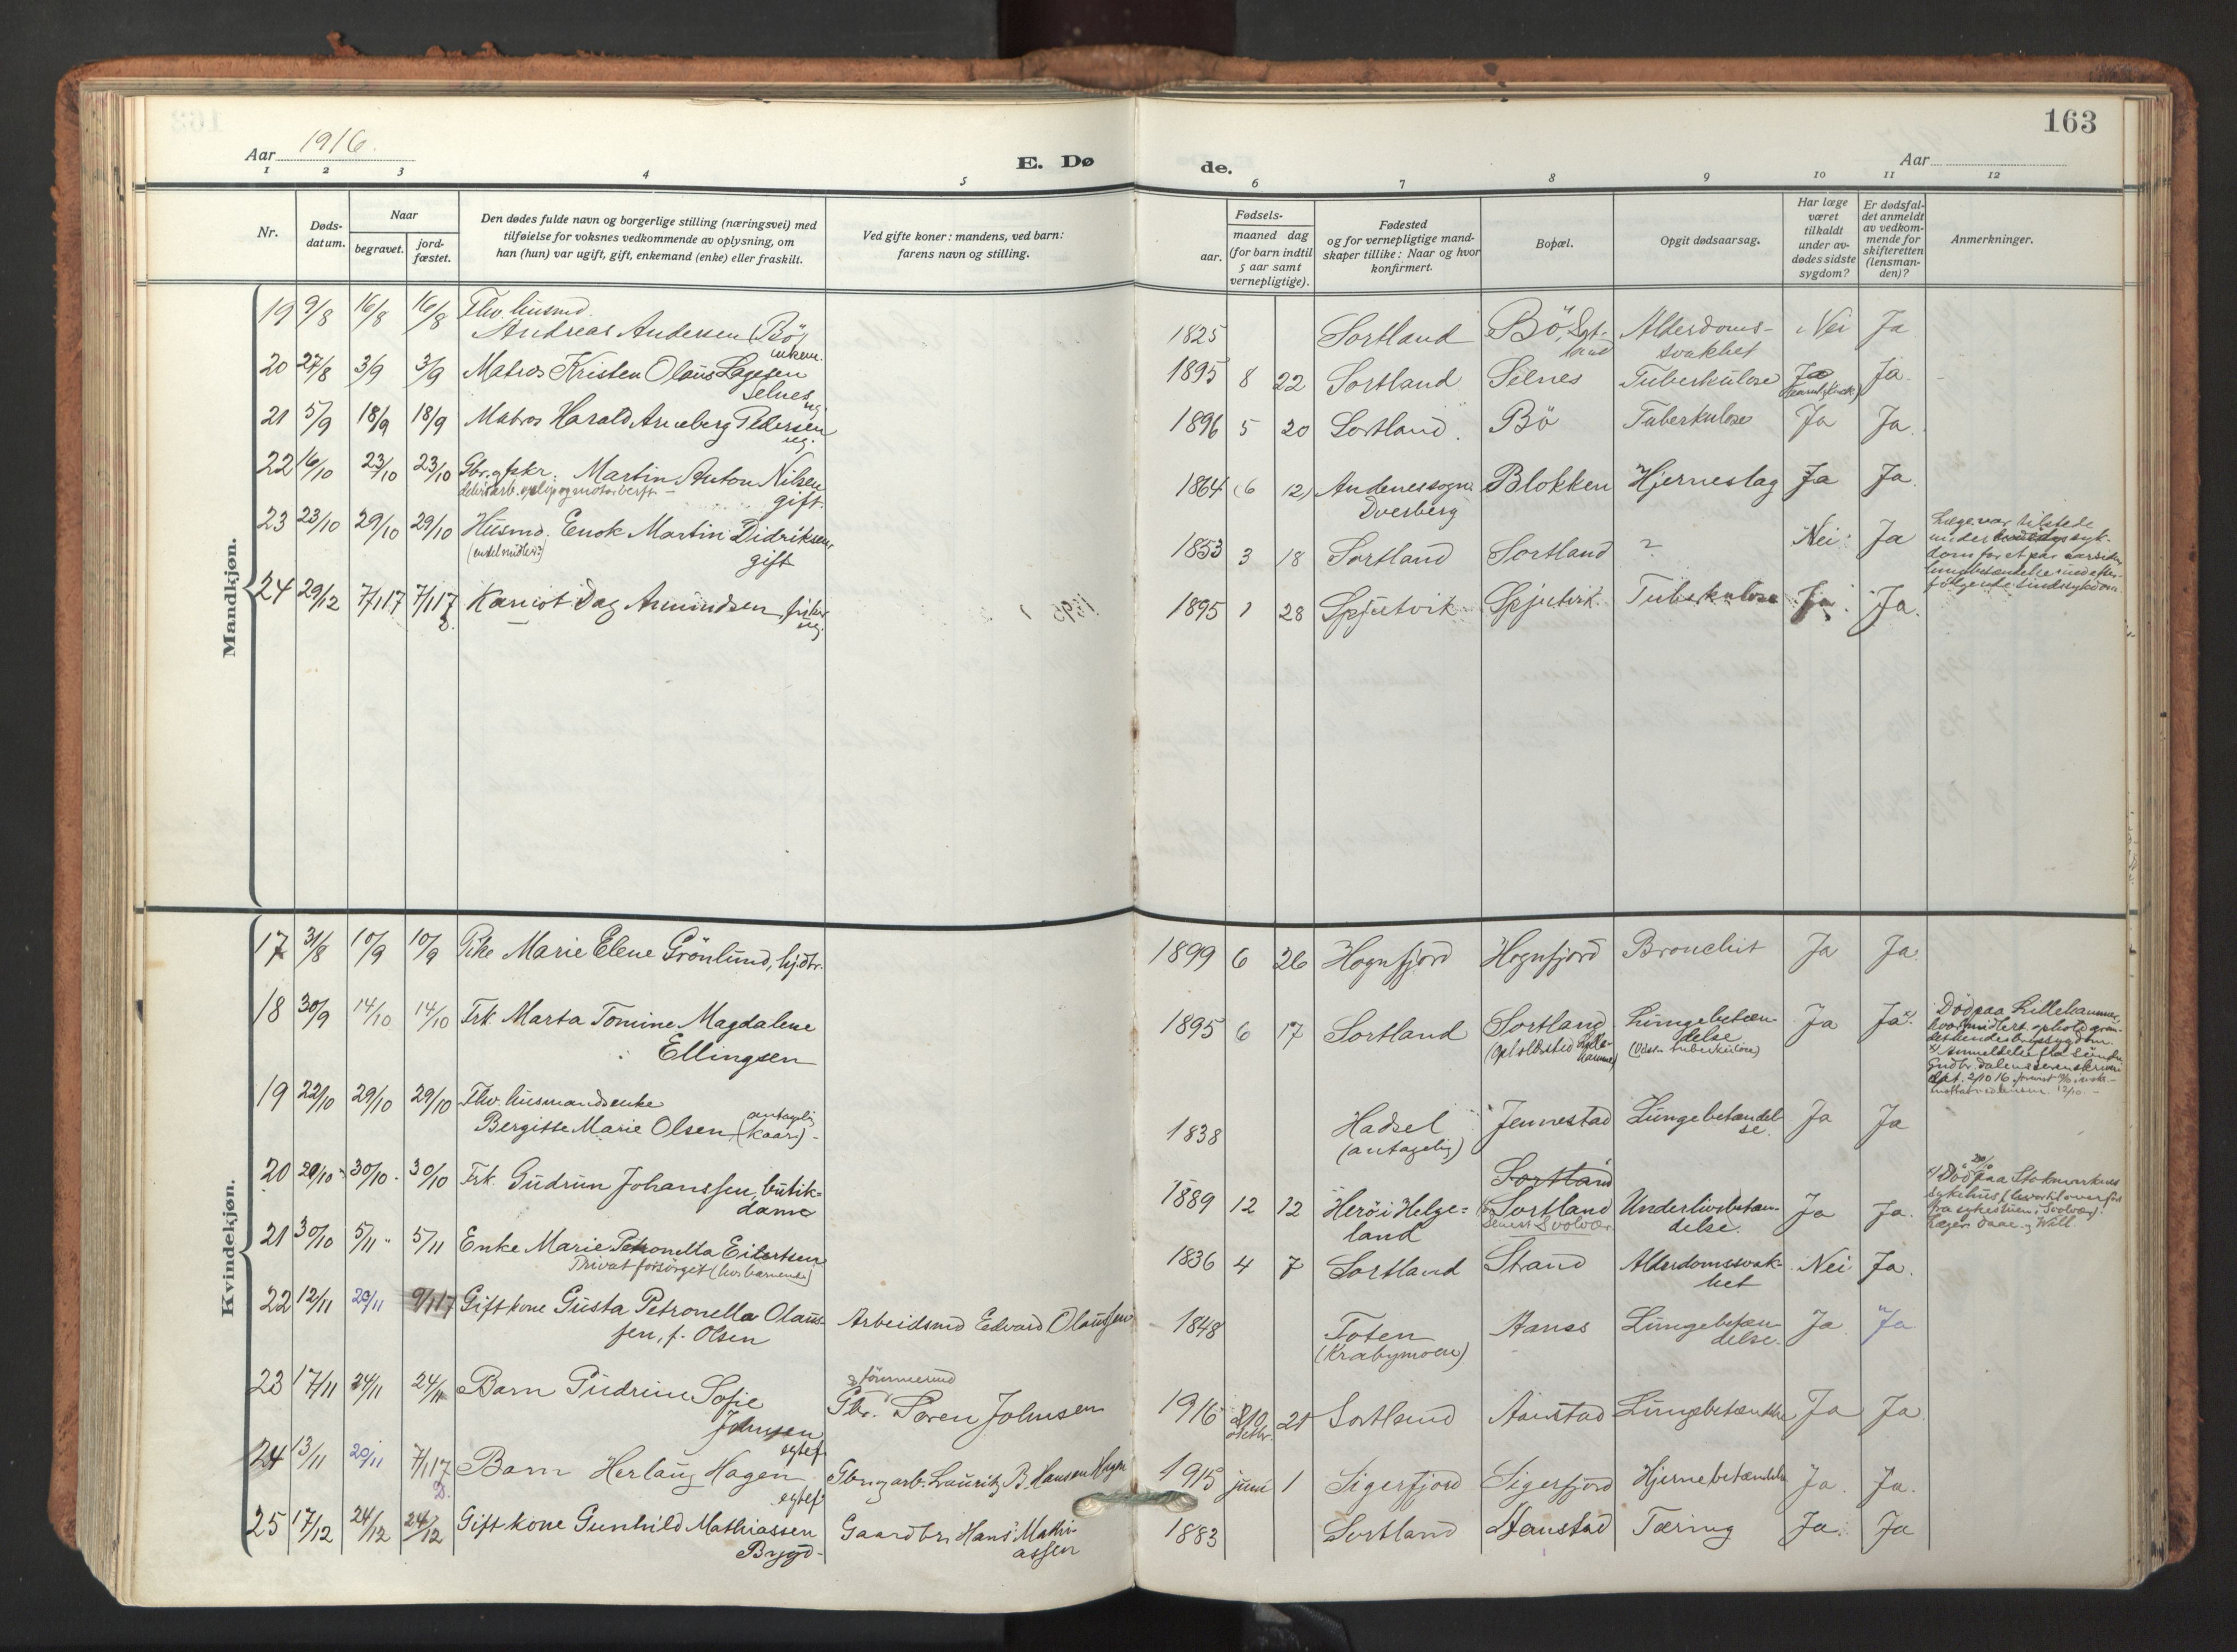 163
Aar 1916.
E. Dø
de.
Aar
1 2 3 4 5 6 7 8 9 10 11 12
Nr.
Døds-
datum.
Naar
begravet.
jord-
fæstet.
Den dødes fulde navn og borgerlige stilling (næringsvei) med
tilføielse for voksnes vedkommende av oplysning, om
han (hun) var ugift, gift, enkemand (enke) eller fraskilt.
Ved gifte koner: mandens, ved barn:
farens navn og stilling.
Fødsels-
aar.
maaned dag
(for barn indtil
5 aar samt
vernepligtige).
Fødested
og for vernepligtige mand-
skaper tillike: Naar og hvor
konfirmert.
Bopæl.
Opgit dødsaarsag.
Har læge
været
tilkaldt
under av-
dødes sidste
sygdom?
Er dødsfal-
det anmeldt
av vedkom-
mende for
skifteretten
(lensman-
den)?
Anmerkninger.
Mandkjøn.
19 9/8 16/8 16/8 Fhv. husmd.
Andreas Andersen (Bö) 1825 Sortland Bö, Sort- Alderdoms- Nei Ja
enkem. land svakhet
20 27/8 3/9 3/9 Matros Kristen Olaus Lagesen 1895 8 22 Sortland Selnes Tuberkulose Ja Ja
Selnes ug.
21 5/9 18/9 18/9 Matros Harald Arneberg Pedersen 1896 5 20 Sortland. Bö Tuberkulose Ja Ja.
ug.
22 16/10 23/10 23/10 Gbr. og fskr. Martin Anton Nilsen 1864 (6 12) Andenes sogn Blokken Hjerneslag Ja Ja.
gift. Dverberg
23 23/10 29/10 29/10 Husmd. Enok Martin Didriksen, 1853 3 18 Sortland Sortland ? Nei Ja Læge var tilstede
gift
24 29/12 7/1 17 7/1 17 Karriot Dag Amundsen, fisker 1895 1 28 Spjutvik Spjutvik. Tuberkulose Ja. Ja.
ug.
Kvindekjøn.
17 31/8 10/9 10/9 Pike Marie Elene Grönlund, hj.dtr. 1899 6 26 Hognfjord Hognfjord Bronchit Ja Ja.
18 30/9 14/10 14/10 Frk. Marta Tomine Magdalene 1895 6 17 Sortland Sortland Lungebetæn- Ja Ja x). Död paa Lillehammer,
Ellingsen (Opholdssted Lille- delse
hammer) (Uds. tuberkulose)
19 22/10 29/10 29/10 Fhv. husmandsenke
Bergitte Marie Olsen (antagelig 1838 Hadsel Jennestad Lungebetændel- Ja Ja
kaar) (antagelig) se.
20 20/10 30/10 30/10 Frk. Gudrun Johanssen, butik- 1889 12 12 Herö i Helge- Sortland Underlivsbetæn- Ja Ja. x) Död 20/10 paa Stokmarknes
dame land senest Svolvær delse. sykehus
21 30/10 5/11 5/11 Enke Marie Petronella Eilertsen 1836 4 7 Sortland Strand Alderdomssvak- Nei Ja.
Privat forsörget (hos barnene) het
22 12/11 20/11 9/1 17 Gift kone Gusta Petronella Olaus- Arbeidsmd Edvard Olaussen 1848 Toten Aanes Lungebetæn- Ja Ja
sen, f. Olsen (Krabymoen) delse.
23 17/11 24/11 24/11 Barn Gudrun Sofie Gbr. Sören Johnsen 1916 10 21 Sortland Aanstad Lungebetændelse Ja Ja
Johnsen egtef. oktbr.
24 13/11 20/11 7/1 17 Barn Herlaug Hagen Gbr. og arb. Lauritz B. Hansen Hagen 1915 juni 1 Sigerfjord Sigerfjord Hjernebetændelse Ja. Ja.
egtef.
25 17/12 24/12 24/12 Gift kone Gunhild Mathiassen Gaardbr. Hans Mathi- 1883 Sortland Aanstad Tæring Ja. Ja
Brygd- assen